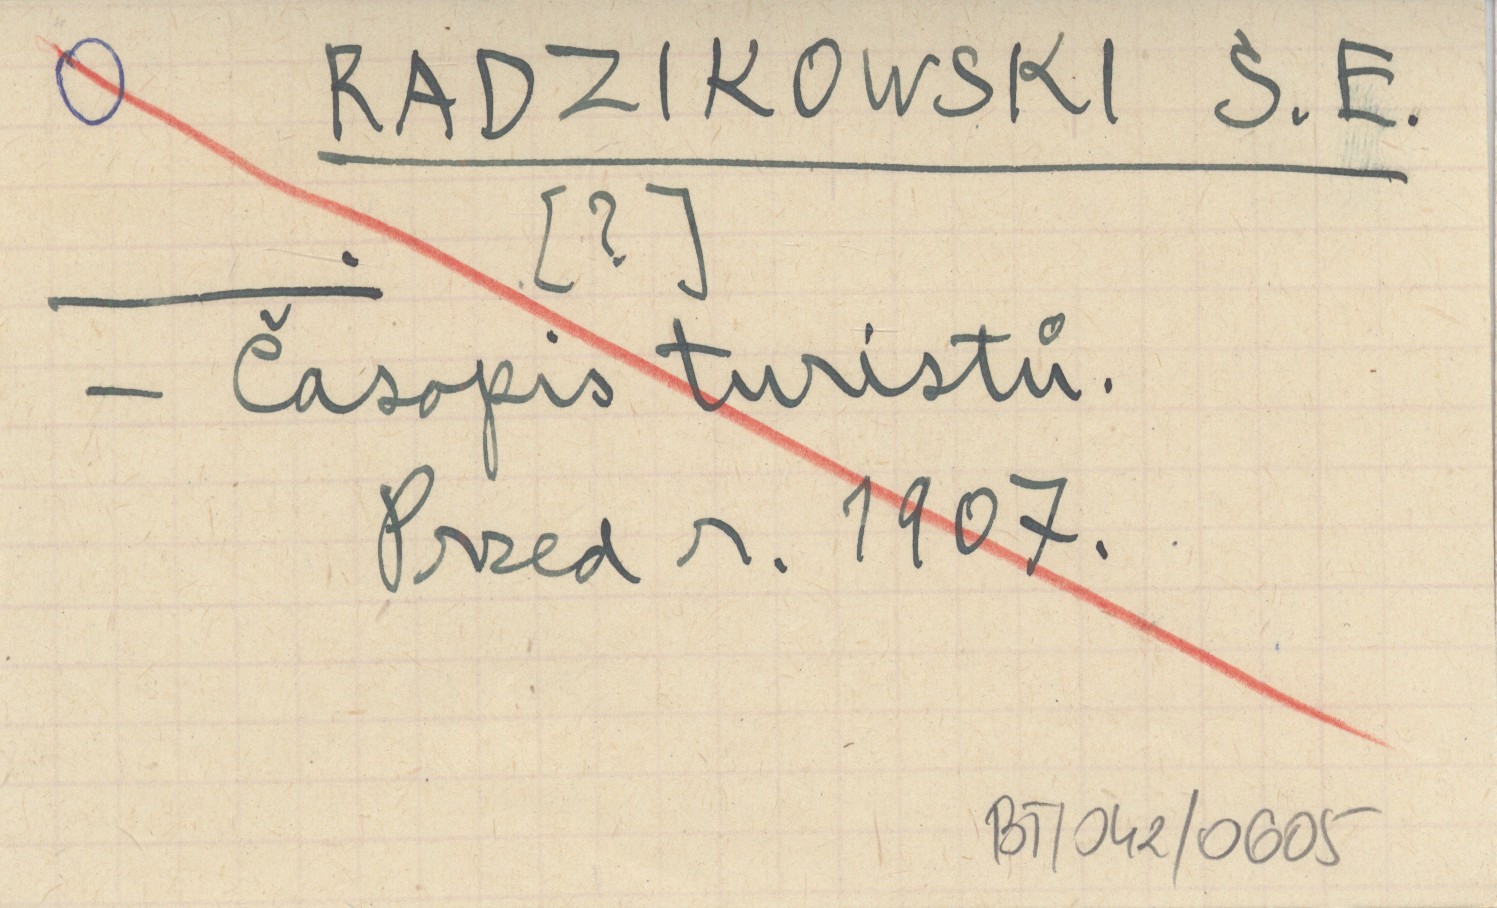 RADZIKOWSKI S.E.
[?]
— Časopis turistů.
Przed r. 1907.
BT/042/0605